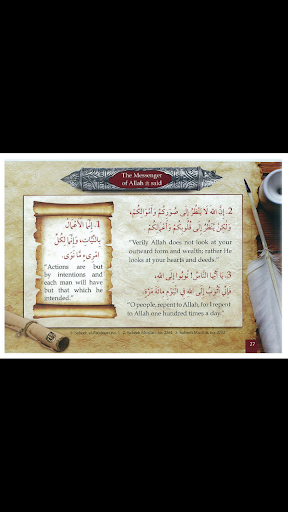 The Messenger
of Allah ﷺ said
1. إِنَّمَا الْأَعْمَالُ
بِالنِّيَّاتِ، وَإِنَّمَا لِكُلِّ
امْرِىءٍ مَّا نَوَى.
"Actions are but
by intentions and
each man will have
but that which he
intended."
2. إِنَّ اللهَ لَا يَنْظُرُ إِلَى صُوَرِكُمْ وَأَمْوَالِكُمْ،
وَلَكِنْ يَنْظُرُ إِلَى قُلُوبِكُمْ وَأَعْمَالِكُمْ
"Verily Allah does not look at your
outward form and wealth; rather He
looks at your hearts and deeds."
3. يَا أَيُّهَا النَّاسُ! تُوبُوا إِلَى اللهِ،
فَإِنِّي أَتُوبُ إِلَى اللهِ فِي الْيَوْمِ مِائَةَ مَرَّةٍ.
"O people, repent to Allah, for I repent
to Allah one hundred times a day."
27